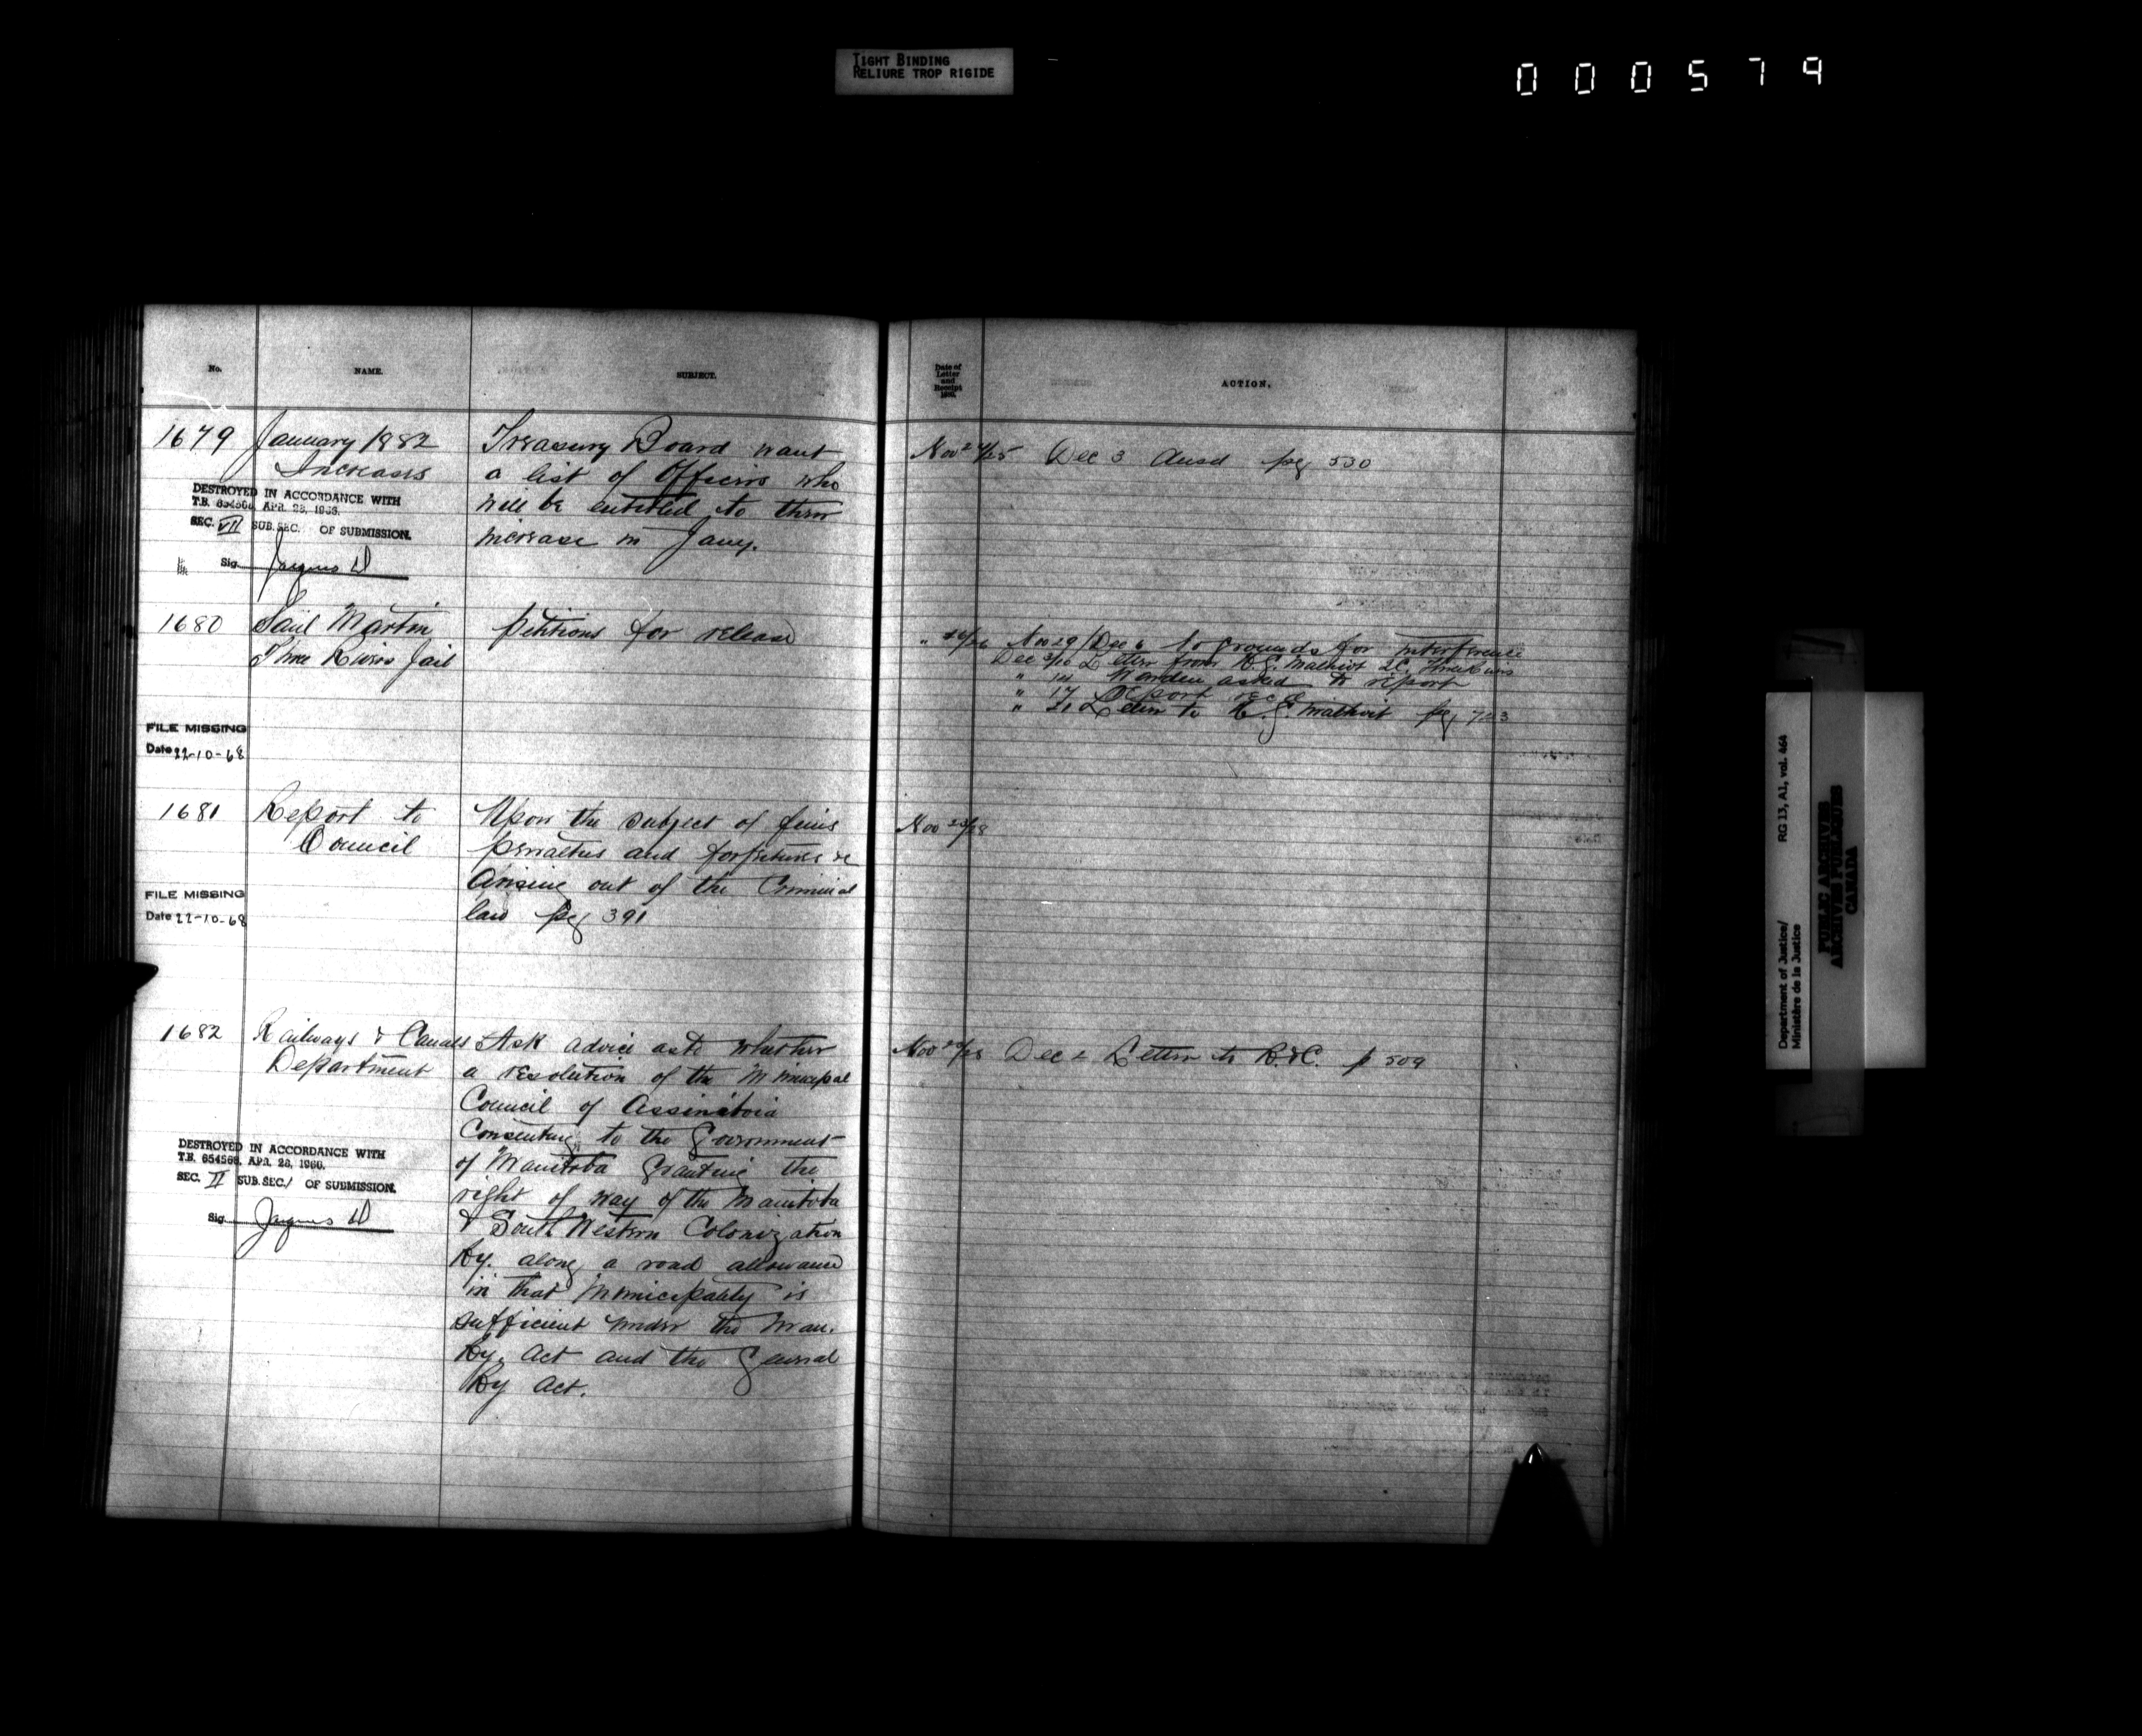 TIGHT BINDING
RELIURE TROP RIGIDE
000579
No.
NAME.
SUBJECT.
Date of
Letter
and
Receipt
ACTION.
1679
January 1882
Increases
Treasury Board want
a list of Officers who
will be entitled to their
increase in Jany.
Nov 24/25
Dec 3 Ansd pg 530
DESTROYED IN ACCORDANCE WITH
T.B. 654568, APR. 28, 1966.
SEC. VII SUB.SEC. OF SUBMISSION.
Sig. Jacques D
1680
Saul Martin
Three Rivers Jail
Petitions for release
" 26/26
Nov 29/Dec 6 no grounds for interference
Dec 3/10 Letter from H.G. Malhiot QC. Three Rivers
" 14 Warden asked to report
" 17 Report recd
" 21 Letter to H.G. Malhiot pg 723
FILE MISSING
Date 22-10-68
1681
Report to
Council
Upon the subject of fines
penalties and forfeitures &c
Arising out of the Criminal
law pg 391
Nov 28
FILE MISSING
Date 22-10-68
1682
Railways & Canals
Department
Ask advice as to whether
a resolution of the Municipal
Council of Assiniboia
Consenting to the Government
of Manitoba granting the
right of way of the Manitoba
& South Western Colonization
Ry. along a road allowance
in that Municipality is
sufficient under the Man.
Ry. Act and the General
Ry Act.
Nov 28
Dec 2 Letter to R.&C. p 509
DESTROYED IN ACCORDANCE WITH
T.B. 654568, APR. 28, 1966.
SEC. II SUB.SEC./ OF SUBMISSION.
Sig. Jacques D
Department of Justice/ RG 13, A1, vol. 464
Ministère de la Justice
PUBLIC ARCHIVES
ARCHIVES PUBLIQUES
CANADA